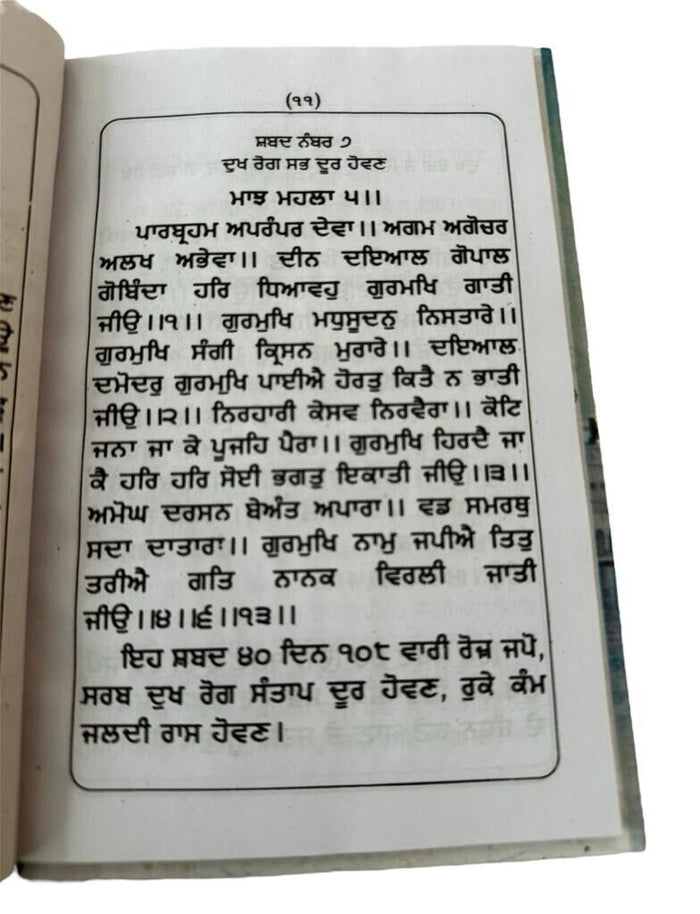 (੧੧)
ਸ਼ਬਦ ਨੰਬਰ ੭
ਦੁਖ ਰੋਗ ਸਭ ਦੂਰ ਹੋਵਣ
ਮਾਝ ਮਹਲਾ ੫।।
ਪਾਰਬ੍ਰਹਮ ਅਪਰੰਪਰ ਦੇਵਾ।। ਅਗਮ ਅਗੋਚਰ
ਅਲਖ ਅਭੇਵਾ।। ਦੀਨ ਦਇਆਲ ਗੋਪਾਲ
ਗੋਬਿੰਦਾ ਹਰਿ ਧਿਆਵਹੁ ਗੁਰਮਖਿ ਗਾਤੀ
ਜੀਉ।।੧।। ਗੁਰਮੁਖਿ ਮਧੁਸੂਦਨੁ ਨਿਸਤਾਰੇ।।
ਗੁਰਮੁਖਿ ਸੰਗੀ ਕ੍ਰਿਸਨ ਮੁਰਾਰੇ।। ਦਇਆਲ
ਦਮੋਦਰੁ ਗੁਰਮੁਖਿ ਪਾਈਐ ਹੋਰਤੁ ਕਿਤੈ ਨ ਭਾਤੀ
ਜੀਉ।।੨।। ਨਿਰਹਾਰੀ ਕੇਸਵ ਨਿਰਵੈਰਾ।। ਕੋਟਿ
ਜਨਾ ਜਾ ਕੇ ਪੂਜਹਿ ਪੈਰਾ।। ਗੁਰਮੁਖਿ ਹਿਰਦੈ ਜਾ
ਕੈ ਹਰਿ ਹਰਿ ਸੋਈ ਭਗਤੁ ਇਕਾਤੀ ਜੀਉ।।੩।।
ਅਮੋਘ ਦਰਸਨ ਬੇਅੰਤ ਅਪਾਰਾ।। ਵਡ ਸਮਰਥੁ
ਸਦਾ ਦਾਤਾਰਾ।। ਗੁਰਮੁਖਿ ਨਾਮੁ ਜਪੀਐ ਤਿਤੁ
ਤਰੀਐ ਗਤਿ ਨਾਨਕ ਵਿਰਲੀ ਜਾਤੀ
ਜੀਉ।।੪।।੬।।੧੩।।
ਇਹ ਸ਼ਬਦ ੪੦ ਦਿਨ ੧੦੮ ਵਾਰੀ ਰੋਜ਼ ਜਪੋ,
ਸਰਬ ਦੁਖ ਰੋਗ ਸੰਤਾਪ ਦੂਰ ਹੋਵਣ, ਰੁਕੇ ਕੰਮ
ਜਲਦੀ ਰਾਸ ਹੋਵਣ।